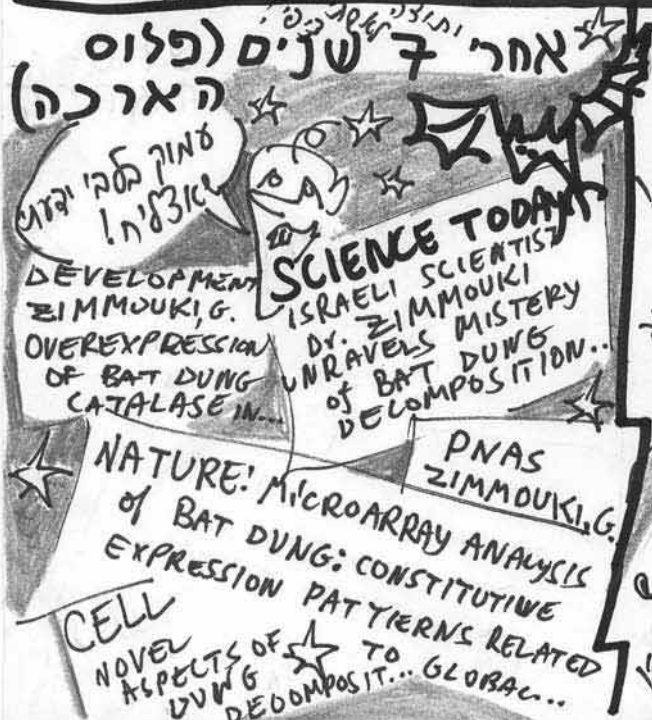 אחרי 7 שנים (פלוס
הארכה)
עמוק בלבי ידעתי
שאצליח!
DEVELOPMENT
ZIMMOUKI, G.
OVEREXPRESSION
OF BAT DUNG
CATALASE IN...
SCIENCE TODAY
ISRAELI SCIENTIST
Dr. ZIMMOUKI
UNRAVELS MISTERY
of BAT DUNG
DECOMPOSITION..
PNAS
ZIMMOUKI, G.
NATURE: MICROARRAY ANALYSIS
of BAT DUNG: CONSTITUTIWE
EXPRESSION PATTIERNS RELATED
CELL
NOVEL
ASPECTS OF
DUNG TO
DECOMPOSIT... GLOBAL...